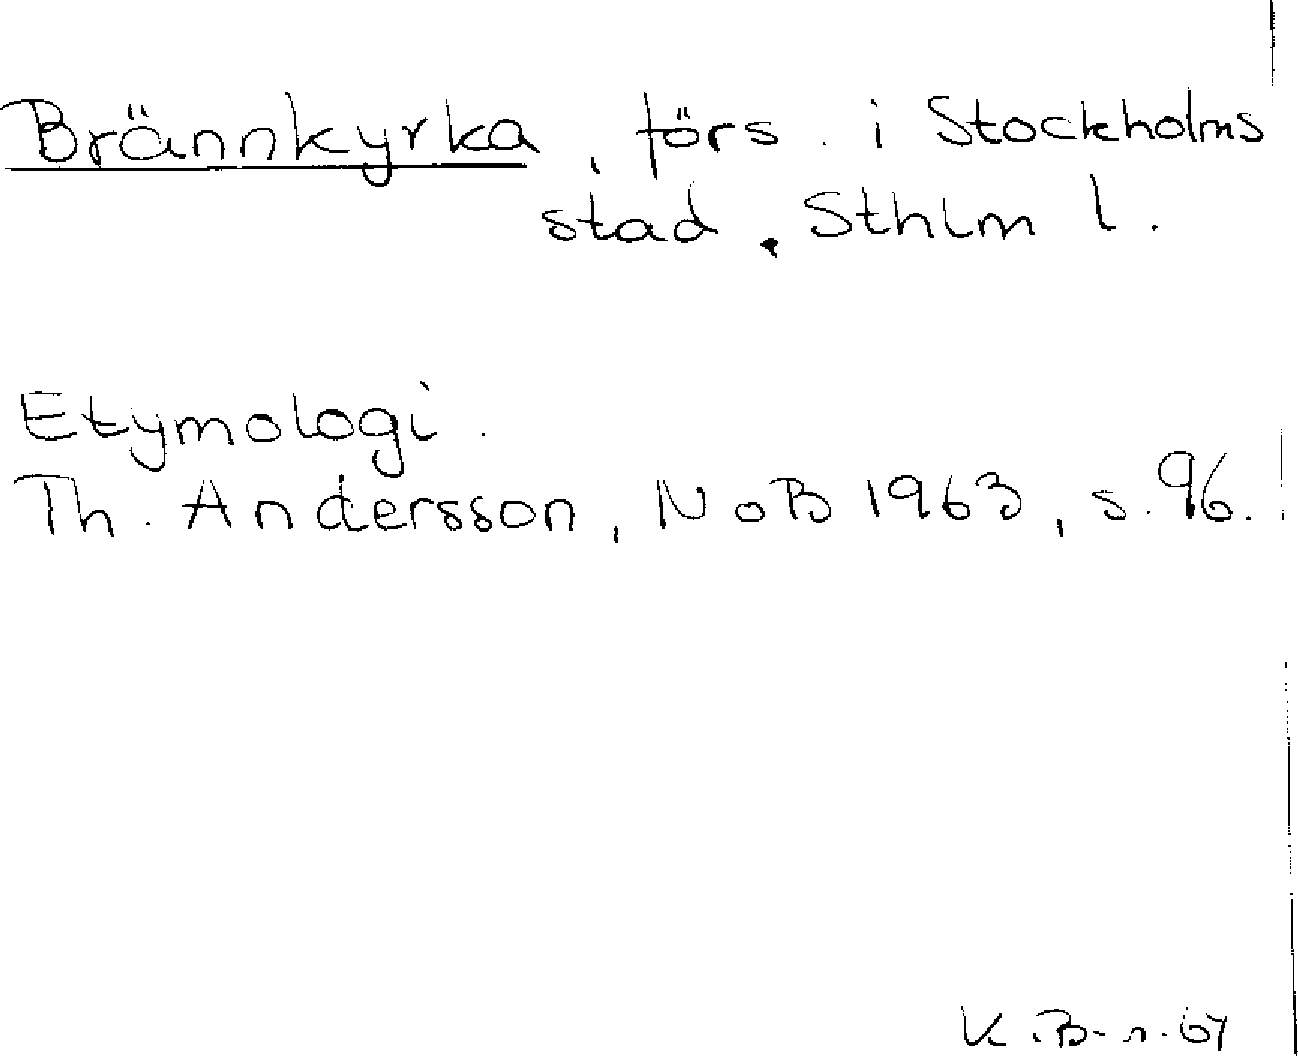 Brännkyrka, förs. i Stockholms
stad, Sthlm l.
Etymologi.
Th. Andersson, NoB 1963, s. 96.
K.B-n. 67